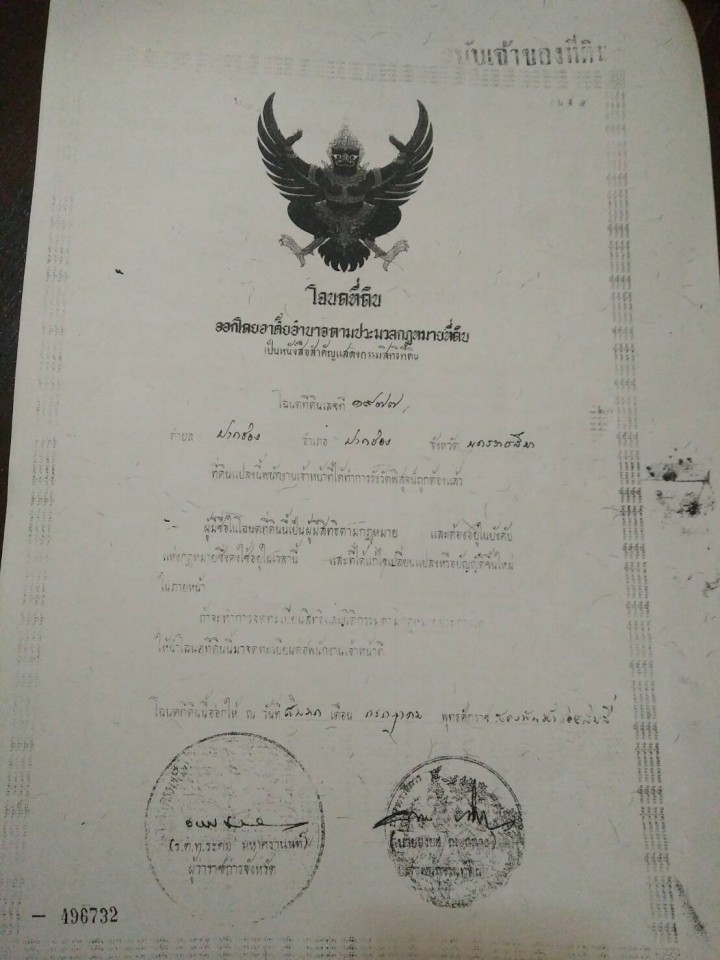 ฉบับเจ้าของที่ดิน
โฉนดที่ดิน
ออกโดยอาศัยอำนาจตามประมวลกฎหมายที่ดิน
เป็นหนังสือสำคัญแสดงกรรมสิทธิ์ที่ดิน
โฉนดที่ดินเลขที่ ๑๙๗๗
ตำบล ปากช่อง อำเภอ ปากช่อง จังหวัด นครราชสีมา
ที่ดินแปลงนี้พนักงานเจ้าหน้าที่ได้ทำการรังวัดพิสูจน์ถูกต้องแล้ว
ผู้มีชื่อในโฉนดที่ดินนี้เป็นผู้มีสิทธิตามกฎหมาย และต้องอยู่ในบังคับ
แห่งกฎหมายซึ่งคงใช้อยู่ในเวลานี้ และที่ได้แก้ไขเปลี่ยนแปลงหรือบัญญัติขึ้นใหม่
ในภายหน้า
ถ้าจะทำการจดทะเบียนสิทธิและนิติกรรมตามกฎหมาย
ให้นำโฉนดที่ดินนี้มาจดทะเบียนต่อพนักงานเจ้าหน้าที่
โฉนดที่ดินนี้ออกให้ ณ วันที่ เดือน กรกฎาคม พุทธศักราช สองพันห้าร้อยสิบสี่
(ร.ต.ท.ระดม มหาศรานนท์)
ผู้ว่าราชการจังหวัด
เจ้าพนักงานที่ดิน
496732